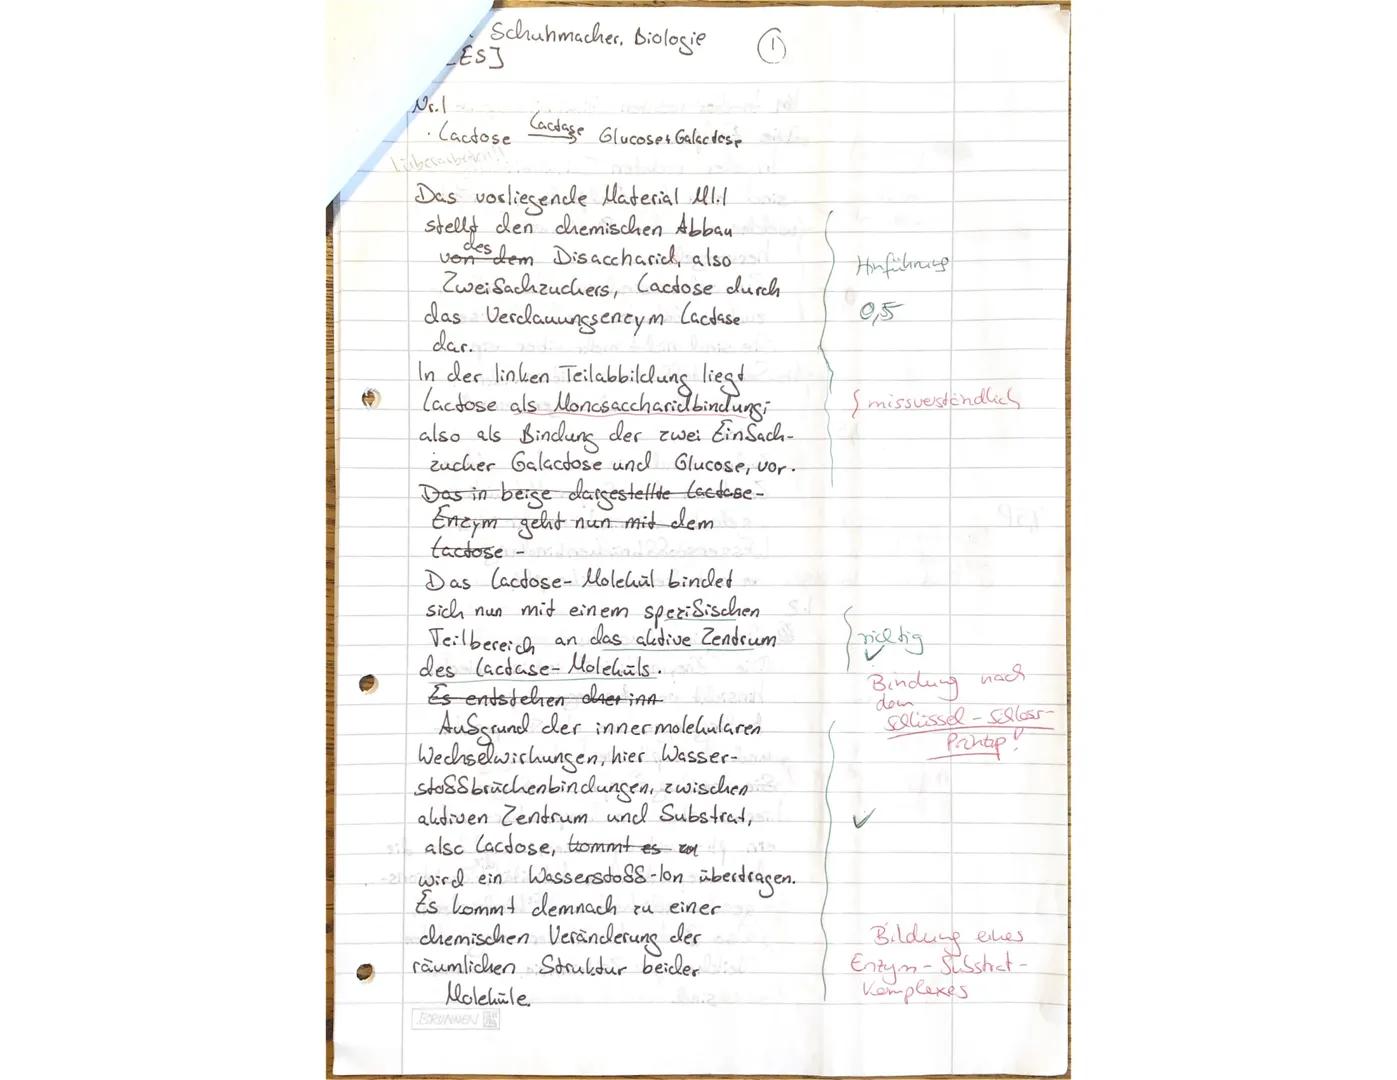 Schuhmacher, Biologie
ES]
1
Nr.1
· Lactose Lactase Glucose + Galactose
! überarbeiten!!
Das vorliegende Material M1.1
stellt den chemischen Abbau
von dem des Disaccharid, also
Zweifachzuckers, Lactose durch
das Verdauungsenzym Lactase
dar.
Hinführung
0,5
In der linken Teilabbildung liegt
Lactose als Monosaccharidbindung,
missverständlich
also als Bindung der zwei Einfach-
zucker Galactose und Glucose, vor.
Das in beige dargestellte Lactase-
Enzym geht nun mit dem
Lactose -
Das Lactose-Molekül bindet
sich nun mit einem spezifischen
Teilbereich an das aktive Zentrum
des Lactase-Moleküls.
richtig
Bindung nach
dem
Schlüssel-Schloss-
Prinzip!
Es entstehen
Aufgrund der innermolekularen
Wechselwirkungen, hier Wasser-
stoffbrückenbindungen, zwischen
aktiven Zentrum und Substrat,
also Lactose, kommt es zu
wird ein Wasserstoff-Ion übertragen.
Es kommt demnach zu einer
chemischen Veränderung der
räumlichen Struktur beider
Moleküle.
Bildung eines
Enzym-Substrat-
Komplexes
BRUNNEN